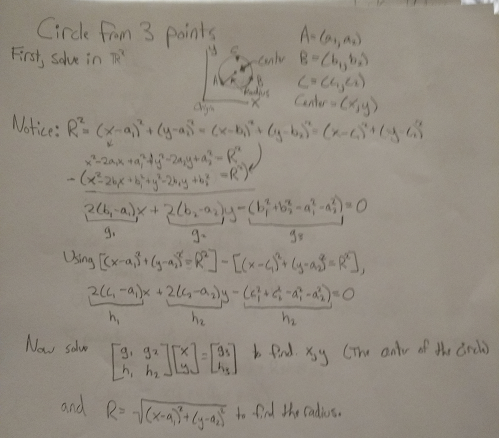 Circle from 3 points
First, solve in ℝ²
y
C
Center
A
B
R
Radius
x
A=(a₁,a₂)
B=(b₁,b₂)
C=(c₁,c₂)
Center=(x,y)
Notice: R²=(x-a₁)²+(y-a₂)²=(x-b₁)²+(y-b₂)²=(x-c₁)²+(y-c₂)²
x²-2a₁x+a₁²+y²-2a₂y+a₂²=R²
-(x²-2b₁x+b₁²+y²-2b₂y+b₂²=R²)
2(b₁-a₁)x+2(b₂-a₂)y-(b₁²+b₂²-a₁²-a₂²)=0
g₁ g₂ g₃
Using [(x-a₁)²+(y-a₂)²=R²]-[(x-c₁)²+(y-c₂)²=R²],
2(c₁-a₁)x+2(c₂-a₂)y-(c₁²+c₂²-a₁²-a₂²)=0
h₁ h₂ h₂
Now solve [g₁ g₂; h₁ h₂][x; y]=[g₃; h₃] to find x,y (The center of the circle)
and R=√(x-a₁)²+(y-a₂)² to find the radius.